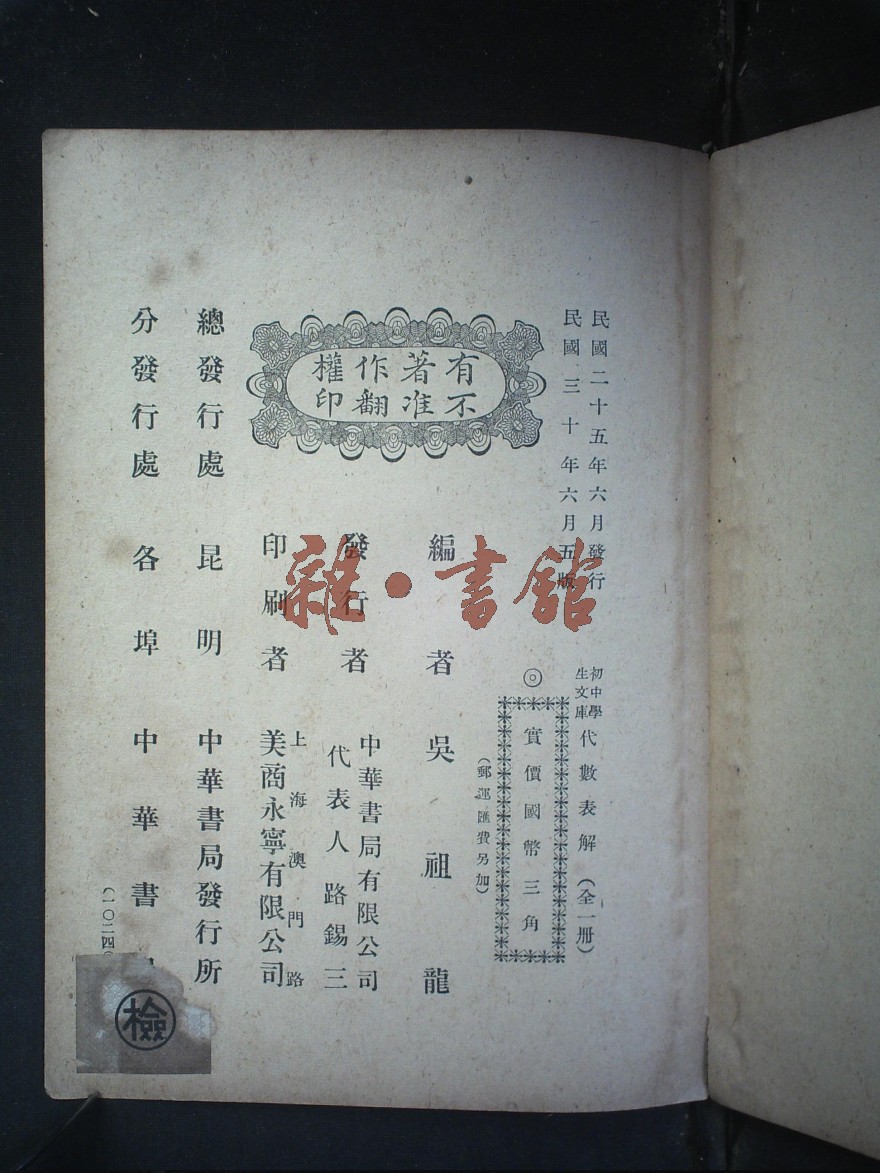 民國二十五年六月發行
民國三十年六月五版
初中學
生文庫
代數表解（全一冊）
◎
實價國幣三角
（郵運匯費另加）
有著作權
不准翻印
編者 吳祖龍
發行者 中華書局有限公司
代表人路錫三
印刷者 上海澳門路
美商永寧有限公司
總發行處 昆明 中華書局發行所
分發行處 各埠 中華書
（一〇二四
檢
雜·書館